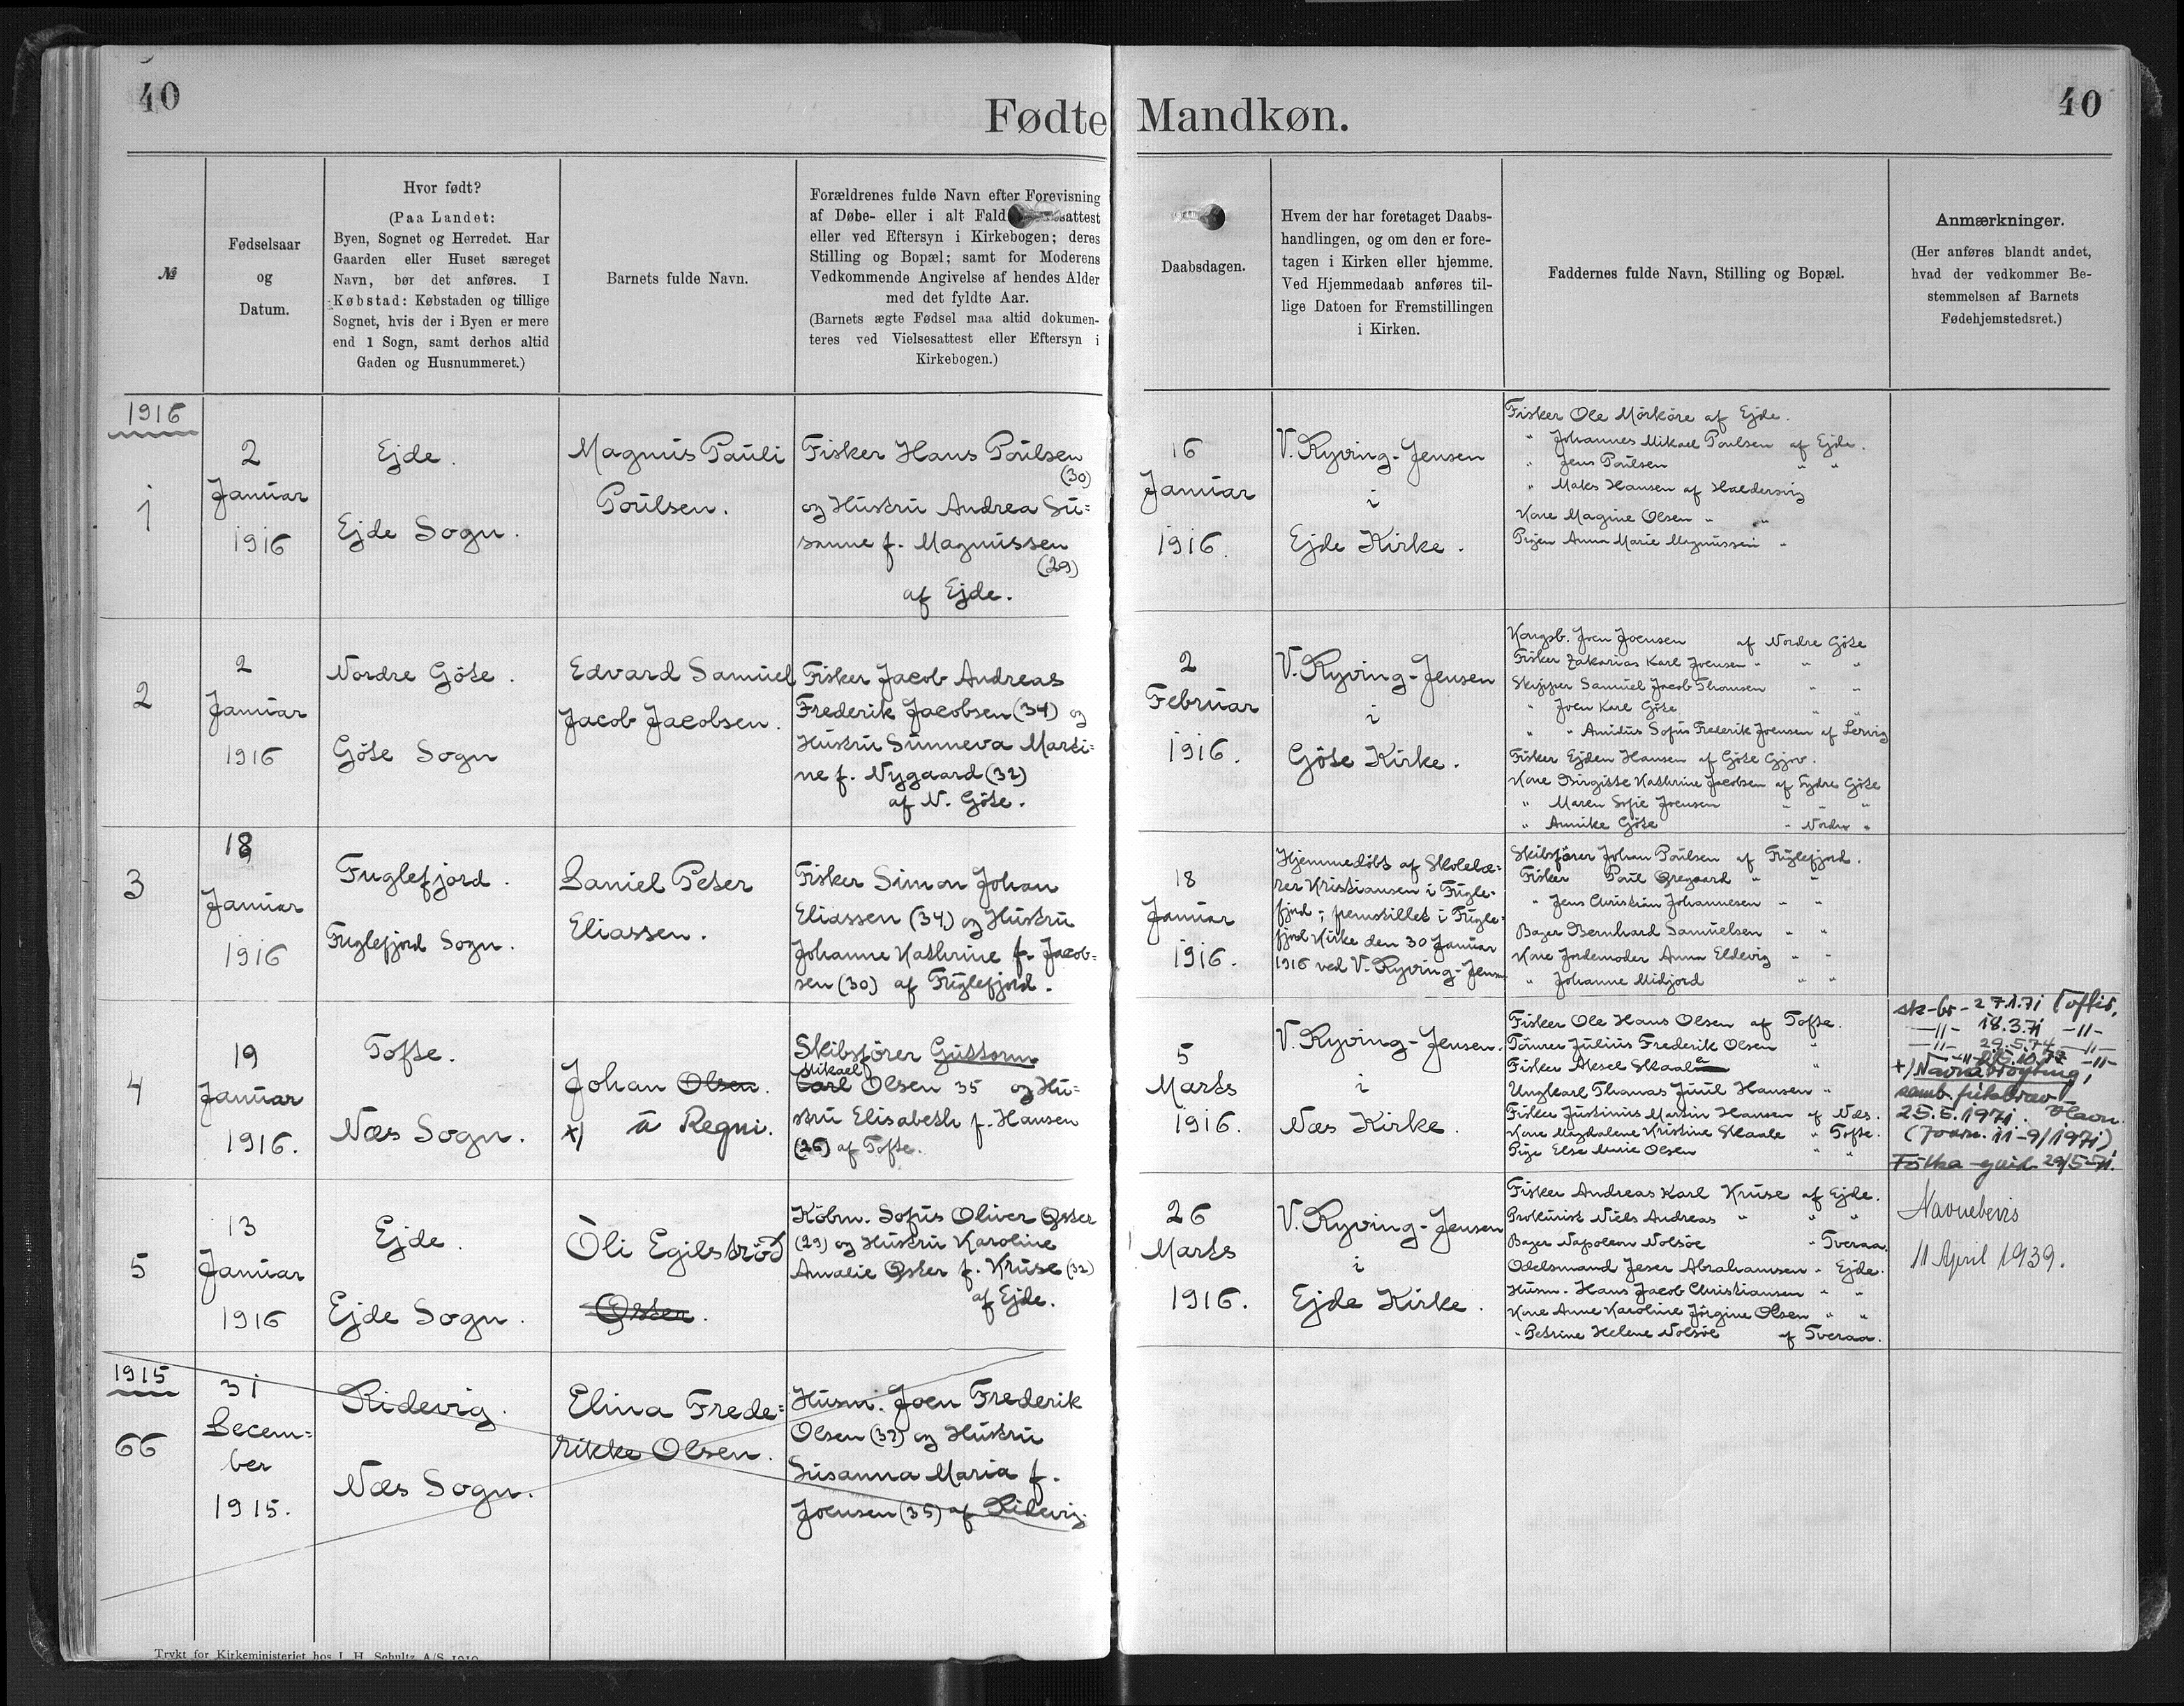 40
Fødte Mandkøn.
40
№
Fødselsaar
og
Datum.
Hvor født?
(Paa Landet:
Byen, Sognet og Herredet. Har
Gaarden eller Huset særeget
Navn, bør det anføres. I
Købstad: Købstaden og tillige
Sognet, hvis der i Byen er mere
end 1 Sogn, samt derhos altid
Gaden og Husnummeret.)
Barnets fulde Navn.
Forældrenes fulde Navn efter Forevisning
af Døbe- eller i alt Fald
eller ved Eftersyn i Kirkebogen; deres
Stilling og Bopæl; samt for Moderens
Vedkommende Angivelse af hendes Alder
med det fyldte Aar.
(Barnets ægte Fødsel maa altid dokumen-
teres ved Vielsesattest eller Eftersyn i
Kirkebogen.)
Daabsdagen.
Hvem der har foretaget Daabs-
handlingen, og om den er fore-
tagen i Kirken eller hjemme.
Ved Hjemmedaab anføres til-
lige Datoen for Fremstillingen
i Kirken.
Faddernes fulde Navn, Stilling og Bopæl.
Anmærkninger.
(Her anføres blandt andet,
hvad der vedkommer Be-
stemmelsen af Barnets
Fødehjemstedsret.)
1916
1
2
Januar
1916
Ejde.
Ejde Sogn.
Magnus Pauli
Poulsen.
Fisker Hans Poulsen
(30)
og Hustru Andrea Su=
sanne f. Magnussen
(29)
af Ejde.
16
Januar
1916.
V. Ryving-Jensen
i
Ejde Kirke.
Fisker Ole Mörköre af Ejde.
" Johannes Mikael Poulsen af Ejde.
" Jens Poulsen " "
" Maks Hansen af Haldersvig
Kone Magine Olsen " "
Pigen Anna Marie Magnussen "
2
2
Januar
1916
Nordre Göte.
Göte Sogn
Edvard Samuel
Jacob Jacobsen.
Fisker Jacob Andreas
Frederik Jacobsen (34) og
Hustru Sunneva Marti=
ne f. Nygaard (32)
af N. Göte.
2
Februar
1916.
V. Ryving-Jensen
i
Göte Kirke.
Kongsb. Joen Joensen af Nordre Göte
Fisker Zakarias Karl Joensen " " "
Skipper Samuel Jacob Thomsen " "
" Joen Karl Göte " "
" " Amidus Sofus Frederik Joensen af Lervig
Fisker Ejden Hansen af Göte Gjov.
Kone Birgitte Kathrine Jacobsen af Sydre Göte
" Maren Sofie Joensen " " "
" Annike Göte " Nordre "
3
18
Januar
1916
Fuglefjord.
Fuglefjord Sogn.
Daniel Peter
Eliassen.
Fisker Simon Johan
Eliassen (34) og Hustru
Johanne Kathrine f. Jacob-
sen (30) af Fuglefjord.
18
Januar
1916.
Hjemmedöbt af Skolelæ=
rer Kristiansen i Fugle-
fjord; fremstillet i Fugle=
fjord Kirke den 30 Januar
1916 ved V. Ryving-Jensen
Skibsförer Johan Poulsen af Fuglefjord.
Fisker Poul Øregaard " "
" Jens Christian Johannesen " "
Bager Bernhard Samuelsen " "
Kone Jordemoder Anna Eldevig " "
" Johanne Midjord " "
4
19
Januar
1916.
Tofte.
Næs Sogn.
Johan Olsen.
+) á Regni.
Skibsförer Guttorm
Mikael
Carl Olsen 35 og Hu=
stru Elisabeth f. Hansen
(26) af Tofte.
5
Marts
1916.
V. Ryving-Jensen.
i
Næs Kirke.
Fisker Ole Hans Olsen af Tofte.
Tömrer Julius Frederik Olsen "
Fisker Aksel Skaale "
Ungkarl Thomas Juul Hansen "
Fisker Justinus Martin Hansen af Næs.
Kone Magdalene Kristine Skaale " Tofte.
Pige Else Marie Olsen " "
sk-br- 27.1.71 Toftir,
-"- 18.3.71 -"-
-"- 29.5.74 -"-
+) Navnabroyting,
samb. fútabrav
25.5.1971.
(Journ. 11-9/1971)
5
13
Januar
1916
Ejde.
Ejde Sogn.
Òli Egilströð
Øster.
Köbm. Sofus Oliver Øster
(29) og Hustru Karoline
Amalie Øster f. Kruse (32)
af Ejde.
26
Marts
1916.
V. Ryving-Jensen
i
Ejde Kirke.
Fisker Andreas Karl Kruse af Ejde.
Prokurist Niels Andreas " " "
Bager Napoleon Nolsöe " Tveraa.
Odelsmand Jeser Abrahamsen " Ejde.
Husm. Hans Jacob Christiansen " "
Kone Anne Karoline Jörgine Olsen " "
" Petrine Helene Nolsöe af Tveraa.
Navnebevis
11 April 1939.
1915
66
31
Decem=
ber
1915.
Ridevig.
Næs Sogn.
Elina Frede=
rikke Olsen.
Husm. Joen Frederik
Olsen (32) og Hustru
Susanna Maria f.
Joensen (35) af Ridevig.
Trykt for Kirkeministeriet hos J. H. Schultz A/S